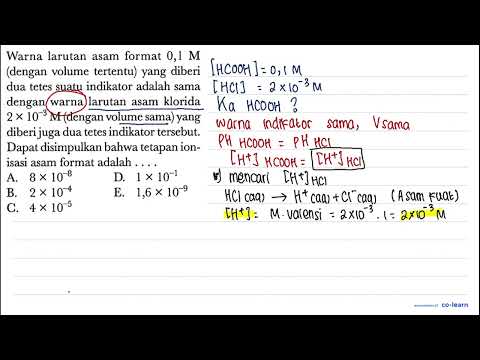 Warna larutan asam format 0,1 M
(dengan volume tertentu) yang diberi
dua tetes suatu indikator adalah sama
dengan warna larutan asam klorida
2 × 10⁻³ M (dengan volume sama) yang
diberi juga dua tetes indikator tersebut.
Dapat disimpulkan bahwa tetapan ion-
isasi asam format adalah . . . .
A. 8 × 10⁻⁸ D. 1 × 10⁻¹
B. 2 × 10⁻⁴ E. 1,6 × 10⁻⁹
C. 4 × 10⁻⁵
[HCOOH] = 0,1 M
[HCl] = 2 × 10⁻³ M
Ka HCOOH ?
warna indikator sama, V sama
PH HCOOH = PH HCl
[H⁺] HCOOH = [H⁺] HCl
mencari [H⁺] HCl
HCl (aq) → H⁺ (aq) + Cl⁻ (aq) (Asam Kuat)
[H⁺] = M . valensi = 2×10⁻³ . 1 = 2×10⁻³ M
co-learn